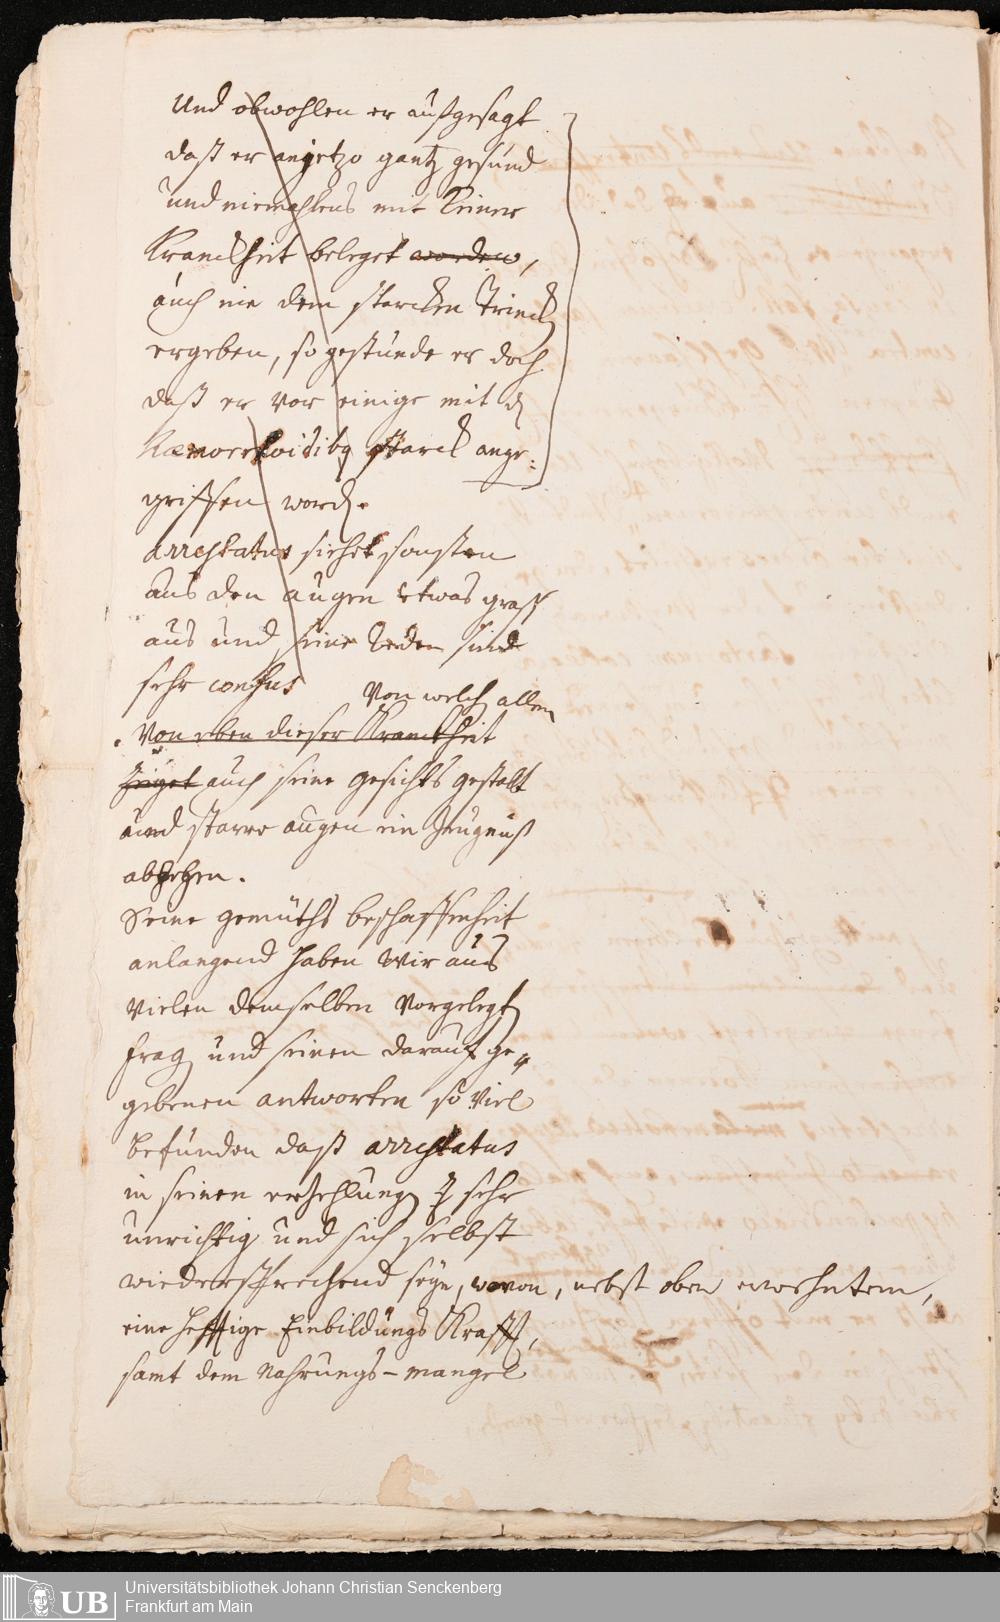 Und obwohlen er außgesagt
daß er anjetzo gantz gesund
und niemahlens mit keiner
Kranckheit beleget worden,
auch nie dem starcken Trinck
ergeben, so gestunde er doch
daß er vor einige mit d
Haemorrhoidibq starck ange:
griffen word.
arrestatus siehet sonsten
aus den augen etwas graß
aus und seine reden sind
sehr confus
von welch allen
Von eben dieser Kranckheit
zeiget auch seine gesichts gestalt
und starre augen ein Zeugnuß
abgeben.
Seine gemüths beschaffenheit
anlangend haben Wir aus
vielen demselben vorgelegt
frag und seinen darauf ge
gebenen antworten so viel
befunden daß arrestatus
in seinen erzehlung sehr
unrichtig und sich selbst
wiedersprechend seye, wovon, nebst oben erwehntem,
eine hefftige Einbildungs Krafft,
samt dem Nahrungs-mangel
Universitätsbibliothek Johann Christian Senckenberg
UB Frankfurt am Main